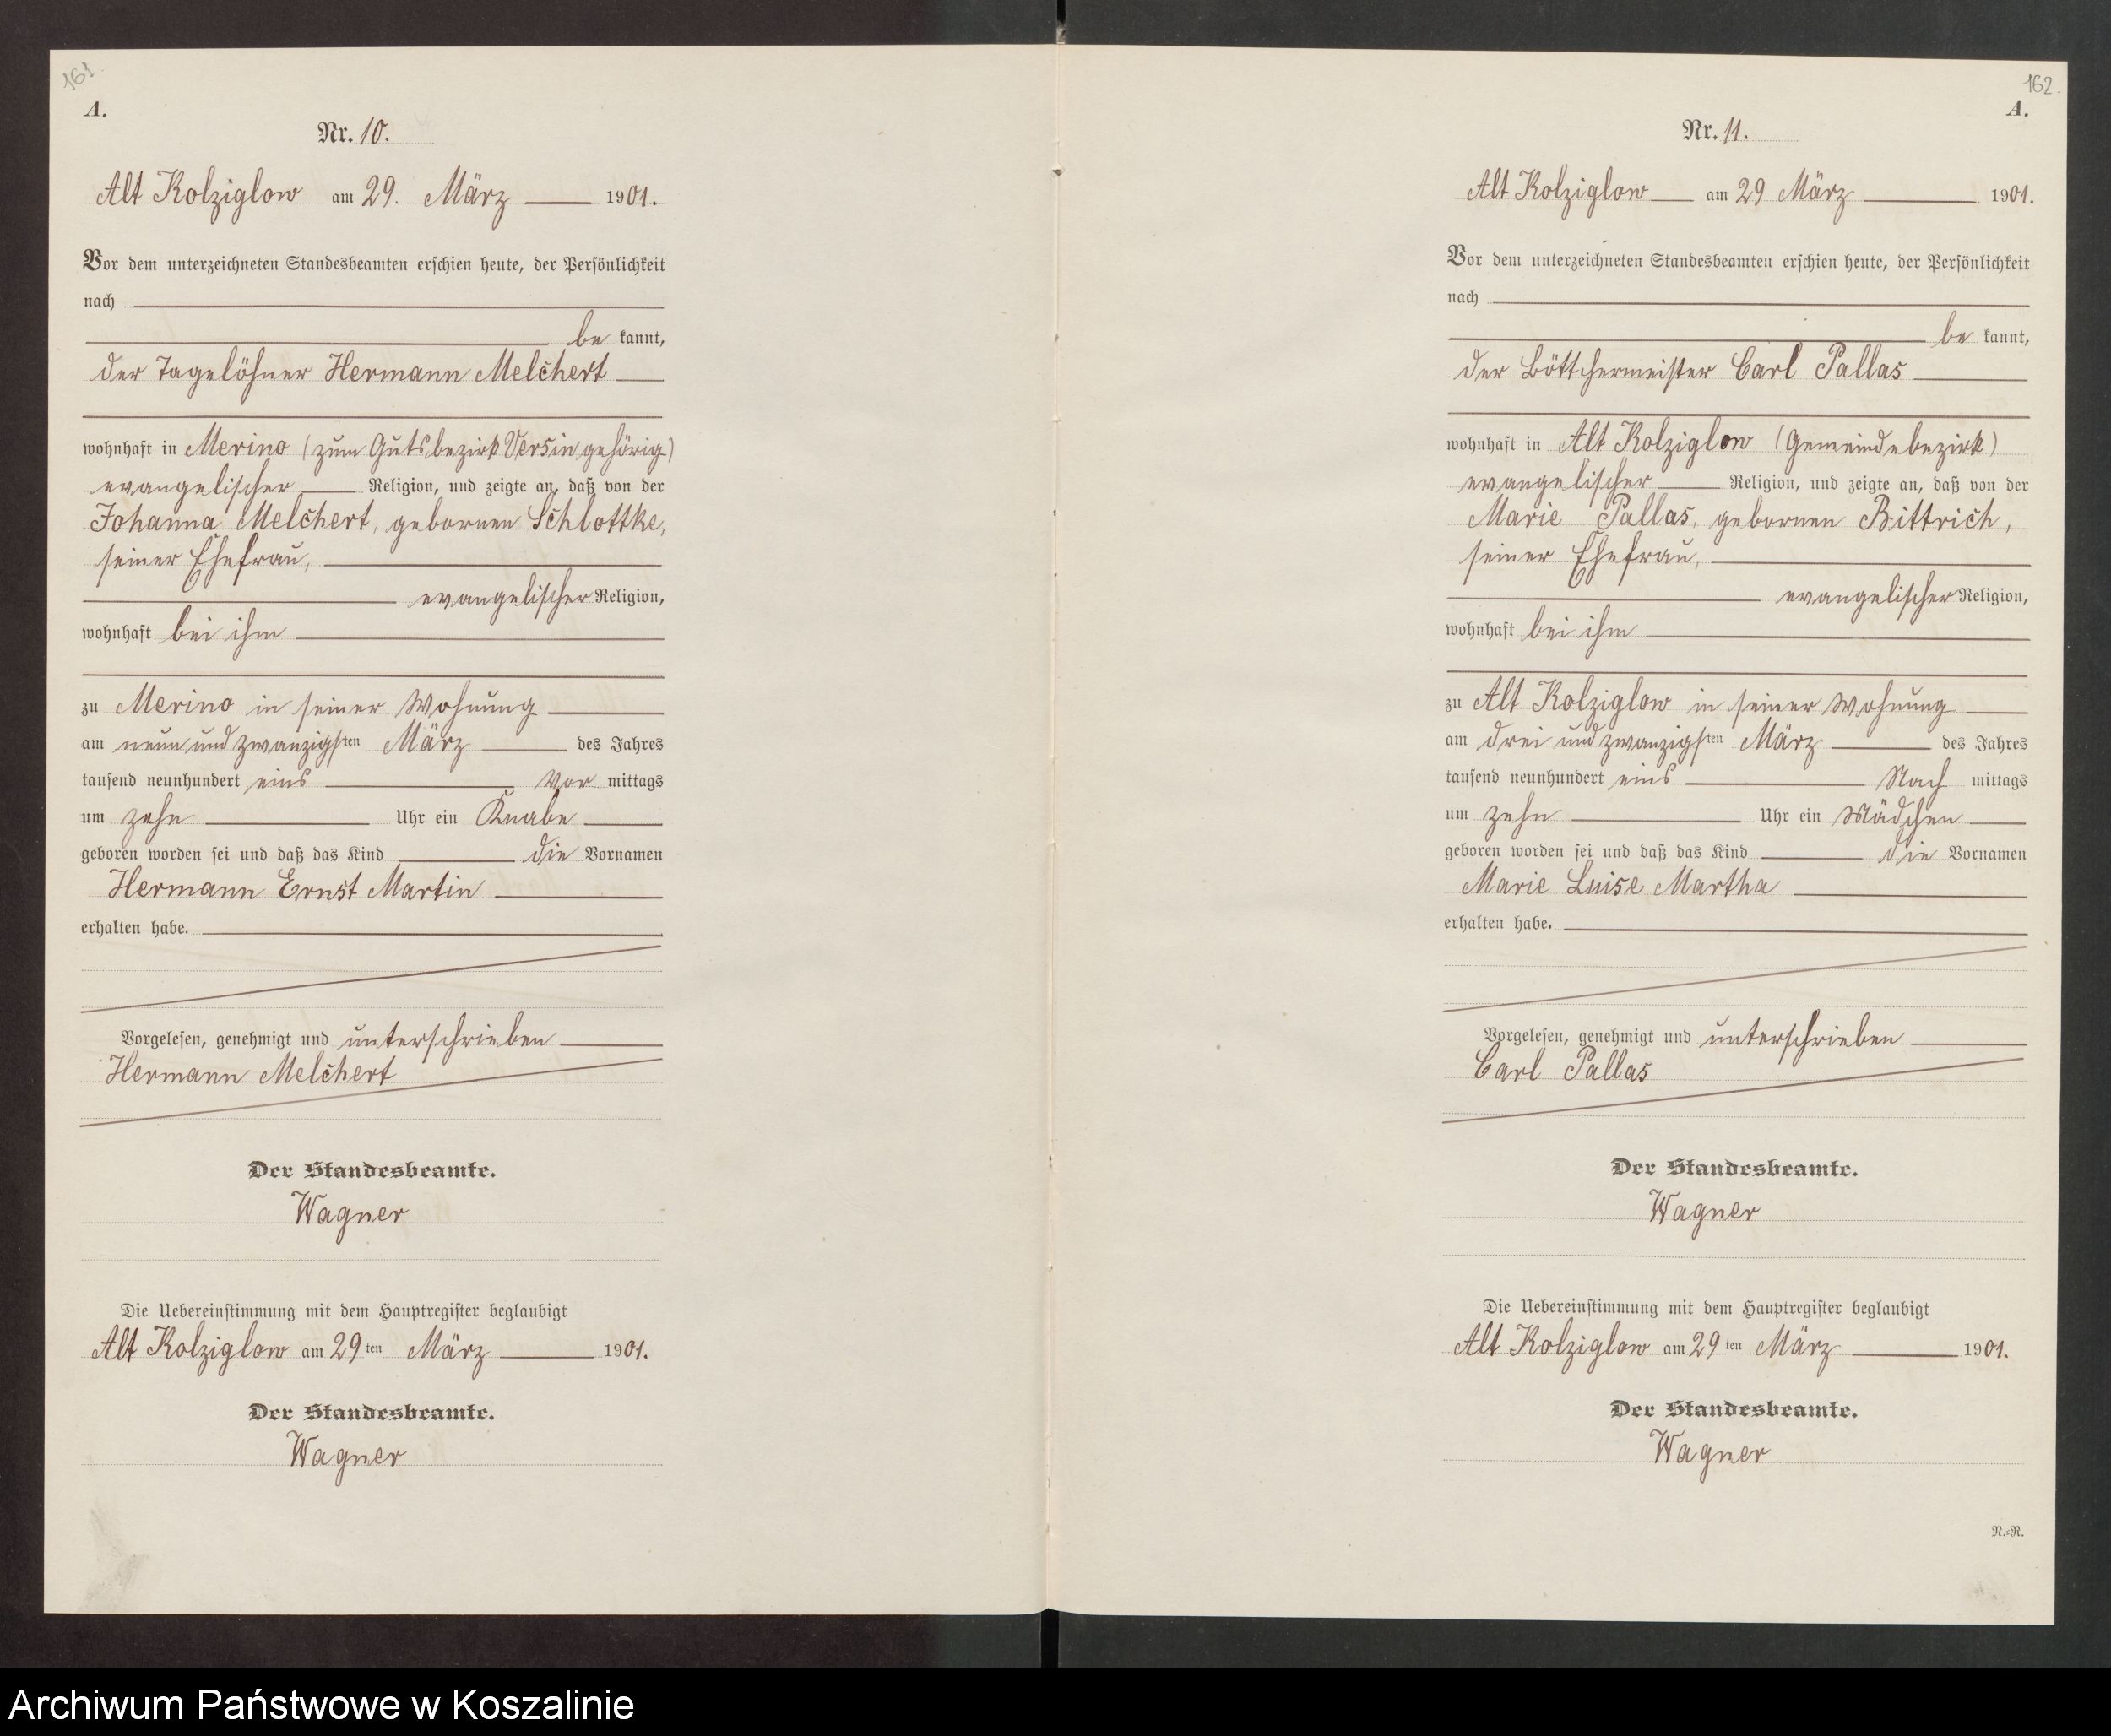 161.
A.
Nr. 10.
Alt Kolziglow am 29. März 1901.
Vor dem unterzeichneten Standesbeamten erschien heute, der Persönlichkeit
nach
be kannt,
der Tagelöhner Hermann Melchert
wohnhaft in Merino (zum Gutsbezirk Versin gehörig)
evangelischer Religion, und zeigte an, daß von der
Johanna Melchert, gebornen Schlottke,
seiner Ehefrau,
evangelischer Religion,
wohnhaft bei ihm
zu Merino in seiner Wohnung
am neun und zwanzigsten März des Jahres
tausend neunhundert eins Vor mittags
um zehn Uhr ein Knabe
geboren worden sei und daß das Kind die Vornamen
Hermann Ernst Martin
erhalten habe.
Vorgelesen, genehmigt und unterschrieben
Hermann Melchert
Der Standesbeamte.
Wagner
Die Uebereinstimmung mit dem Hauptregister beglaubigt
Alt Kolziglow am 29ten März 1901.
Der Standesbeamte.
Wagner
162.
A.
Nr. 11.
Alt Kolziglow am 29 März 1901.
Vor dem unterzeichneten Standesbeamten erschien heute, der Persönlichkeit
nach
be kannt,
der Böttchermeister Carl Pallas
wohnhaft in Alt Kolziglow (Gemeindebezirk)
evangelischer Religion, und zeigte an, daß von der
Marie Pallas, gebornen Bittrich,
seiner Ehefrau,
evangelischer Religion,
wohnhaft bei ihm
zu Alt Kolziglow in seiner Wohnung
am drei und zwanzigsten März des Jahres
tausend neunhundert eins Nach mittags
um zehn Uhr ein Mädchen
geboren worden sei und daß das Kind die Vornamen
Marie Luise Martha
erhalten habe.
Vorgelesen, genehmigt und unterschrieben
Carl Pallas
Der Standesbeamte.
Wagner
Die Uebereinstimmung mit dem Hauptregister beglaubigt
Alt Kolziglow am 29ten März 1901.
Der Standesbeamte.
Wagner
N.=R.
Archiwum Państwowe w Koszalinie